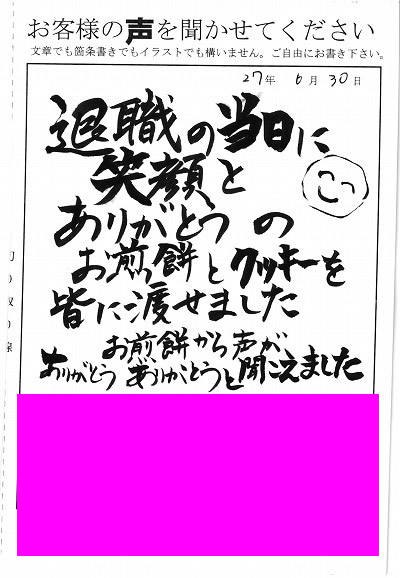 お客様の声を聞かせてください
文章でも箇条書きでもイラストでも構いません。ご自由にお書き下さい。
27年 6月30日
退職の当日に
笑顔と
ありがとうの
お煎餅とクッキーを
皆に渡せました
お煎餅から声が、
ありがとう ありがとうと聞こえました
切り取り線